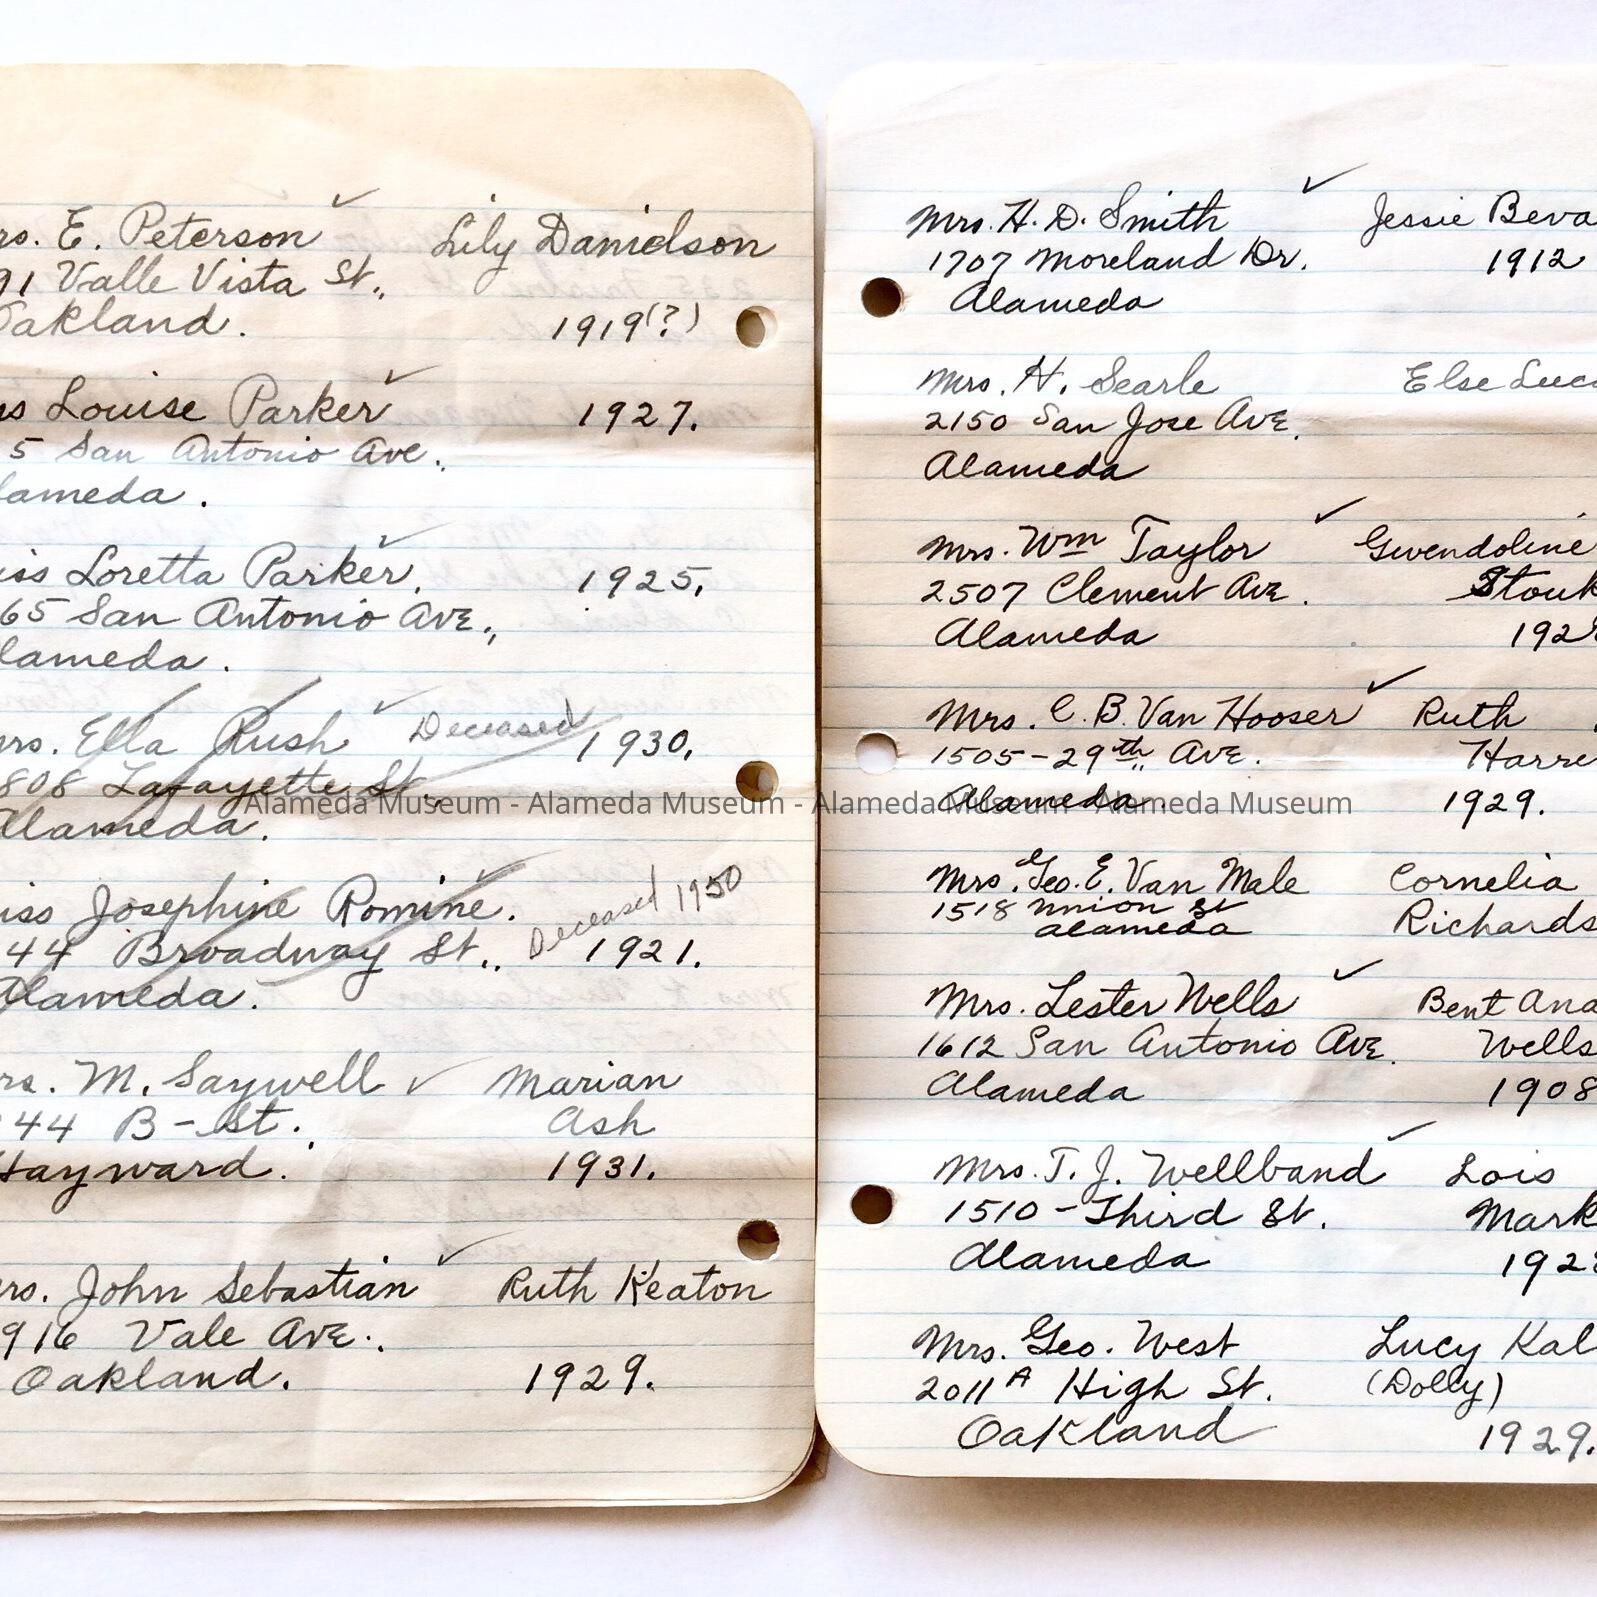 rs. E. Peterson ✓ Lily Danielson
91 Valle Vista St.,
Oakland. 1919(?)
ss Louise Parker ✓ 1927.
5 San Antonio Ave.,
lameda.
iss Loretta Parker, ✓ 1925.
65 San Antonio Ave.,
lameda.
rs. Ella Rush ✓ Deceased 1930.
808 Lafayette St.,
Alameda.
iss Josephine Romine. ✓ Deceased 1950
44 Broadway St., 1921.
Alameda.
rs. M. Saywell ✓ Marian
44 B-St. Ash
Hayward. 1931.
rs. John Sebastian ✓ Ruth Keaton
916 Vale Ave.
Oakland. 1929.
Mrs. H. D. Smith ✓ Jessie Beva
1707 Moreland Dr. 1912
Alameda
Mrs. H. Searle Else Luc
2150 San Jose Ave.
Alameda
Mrs. Wm Taylor ✓ Gwendoline
2507 Clement Ave. Stouk
Alameda 192
Mrs. C. B. Van Hooser ✓ Ruth
1505-29th Ave. Harre
Alameda 1929.
Mrs. Geo. E. Van Male Cornelia
1518 Union St Richards
alameda
Mrs. Lester Wells ✓ Bent Ana
1612 San Antonio Ave. Wells
Alameda 1908
Mrs. T. J. Wellband ✓ Lois
1510-Third St. Mark
Alameda 192
Mrs. Geo. West Lucy Kal
2011A High St. (Dolly)
Oakland 1929.
Alameda Museum - Alameda Museum - Alameda Museum - Alameda Museum